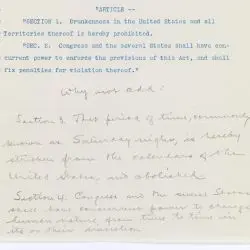 "ARTICLE --
"SECTION 1. Drunkenness in the United States and all
Territories thereof is hereby prohibited.
"SEC. 2. Congress and the several States shall have con-
current power to enforce the provisions of this Act, and shall
fix penalties for violation thereof."
Why not add:
Section 3. That period of time, commonly
known as Saturday night, is hereby
stricken from the calendars of the
United States, and abolished.
Section 4. Congress and the several States
shall have concurrent power to change
human nature from time to time in
its or their discretion